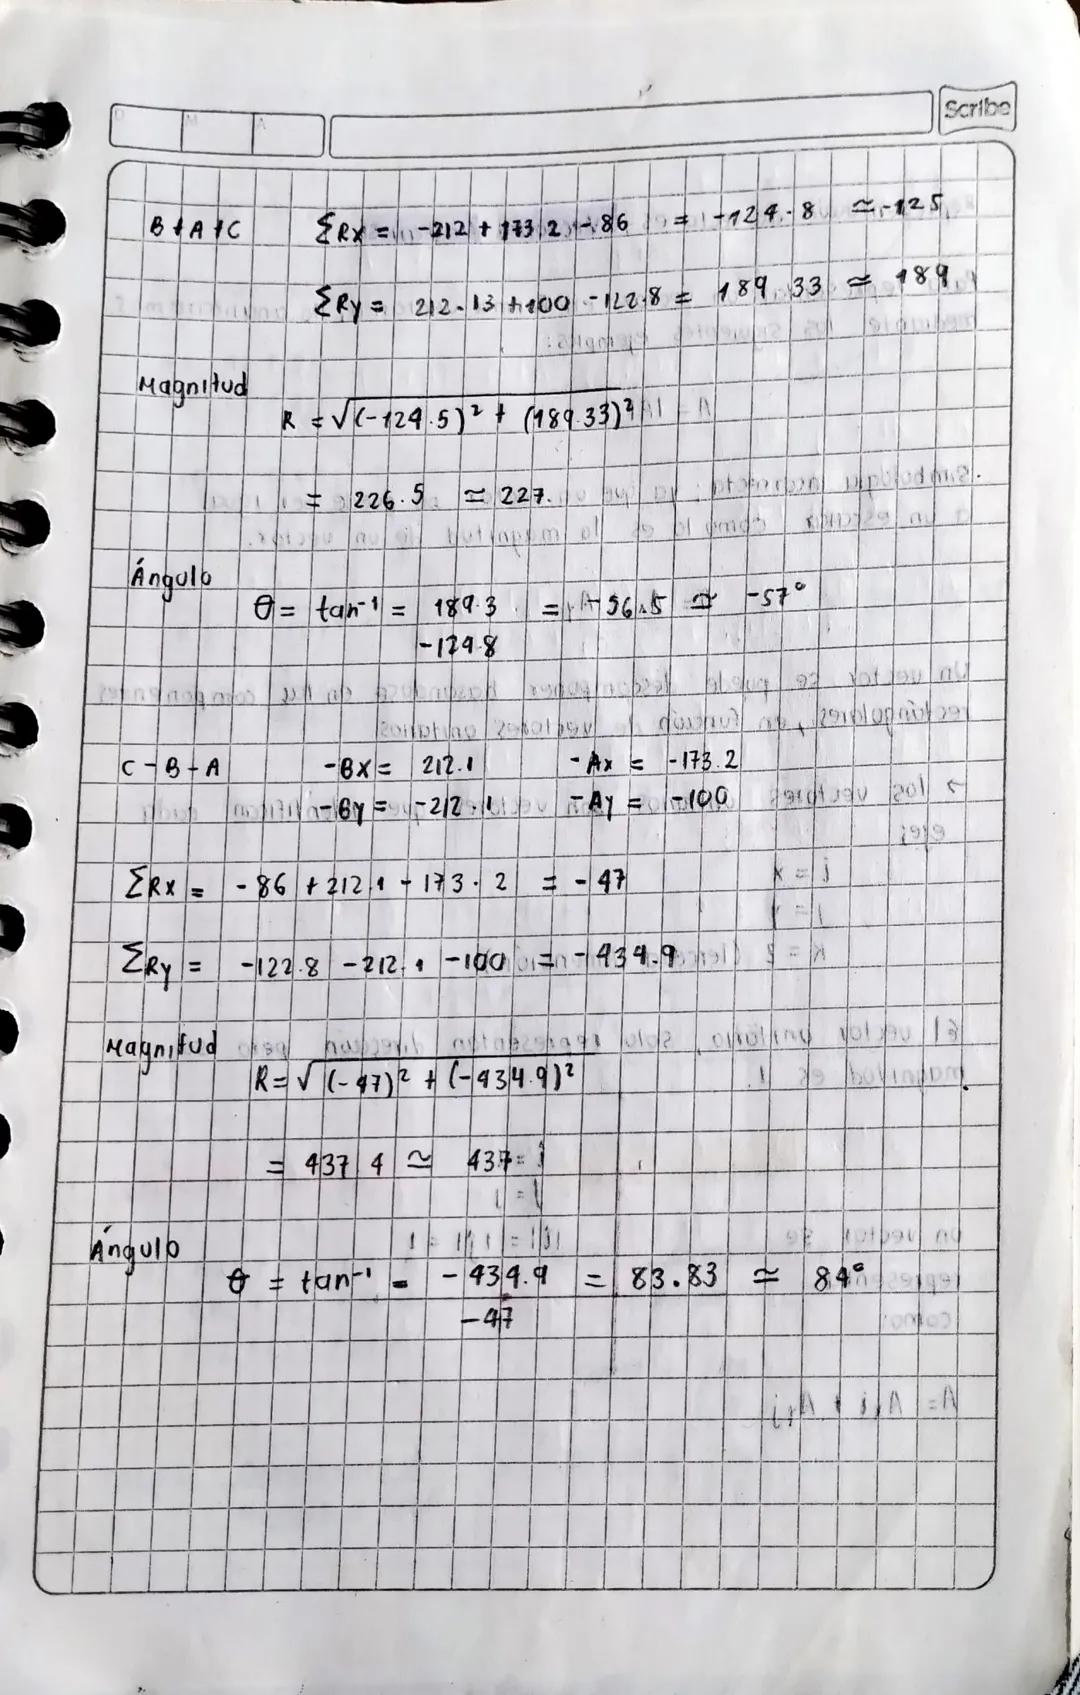 Scribe
B+A+C ΣRx = -212 + 173.2 - 86 = -124.8 ≃ -125
ΣRy = 212.13 + 100 - 122.8 = 189.33 ≃ 189
Magnitud
R = √(-124.5)² + (189.33)²
= 226.5 ≃ 227.
Ángulo
θ = tan⁻¹ = 189.3 = -56.5 ≃ -57°
-124.8
C-B-A -Bx = 212.1 -Ax = -173.2
-By = -212.1 -Ay = -100
ΣRx = -86 + 212.1 - 173.2 = -47
ΣRy = -122.8 - 212.1 - 100 = -434.9
Magnitud
R = √(-47)² + (-434.9)²
= 437.4 ≃ 437
Ángulo
θ = tan⁻¹ = -434.9 = 83.83 ≃ 84°
-47